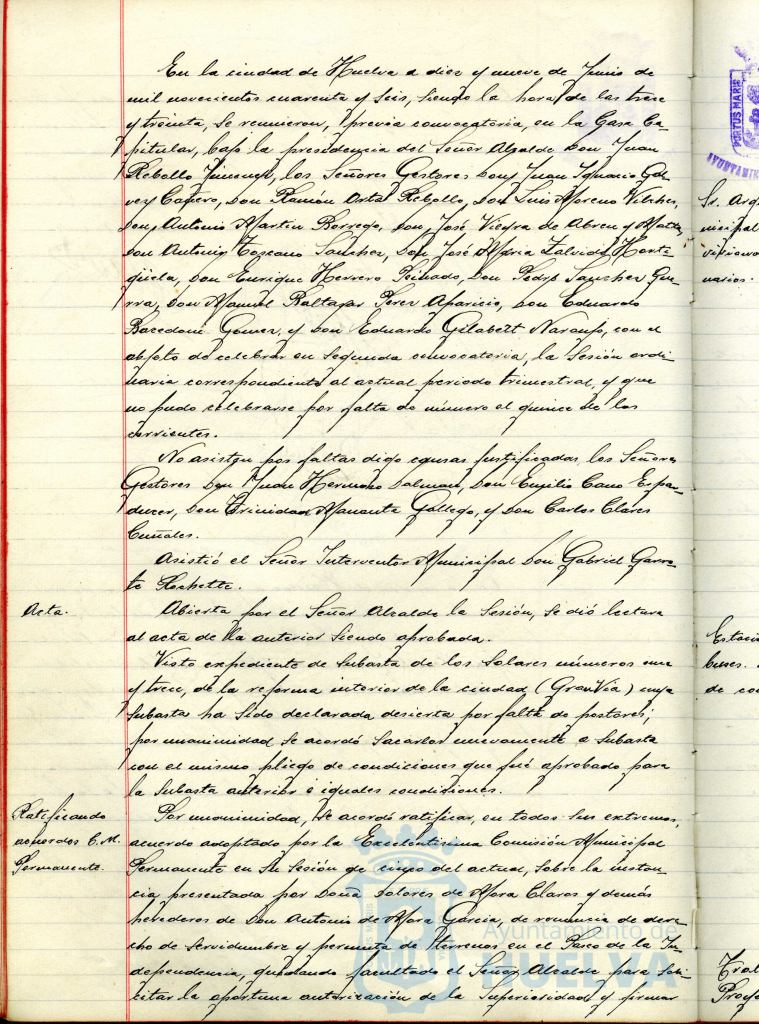 En la ciudad de Huelva a diez y nueve de Junio de
mil novecientos cuarenta y seis, siendo la hora de las trece
y treinta, se reunieron, previa convocatoria, en la Casa Ca-
pitular, bajo la presidencia del Señor Alcalde Don Juan
Rebollo Jimenez, los Señores Gestores Don Juan Ignacio Gál-
vez Cañero, Don Ramón Arta Rebollo, Don Luis Moreno Vilches,
Don Antonio Martin Borrego, Don José Vieyra de Abreu y Motta,
Don Antonio Toscano Sanchez, Don José Maria Zalvide Horti-
güela, Don Enrique Herrero Peinado, Don Pedro Sanchez Gue-
rra, Don Manuel Baltazar Perez Aparicio, Don Eduardo
Gomez, y Don Eduardo Gilabert Naranjo, con el
objeto de celebrar en segunda convocatoria, la Sesión ordi-
naria correspondiente al actual periodo trimestral, y que
no pudo celebrarse por falta de número el quince de los
corrientes.
No asisten por faltas digo causas justificadas los Señores
Gestores Don Juan Hermoso Dalman, Don Emilio Cano Espa-
Don Trinidad Gallego, y Don Carlos Clares
Asistió el Señor Interventor Municipal Don Gabriel Garro-
te
Acta.
Abierta por el Señor Alcalde la Sesión, se dió lectura
al acta de la anterior siendo aprobada.
Visto expediente de subasta de los solares números once
y trece, de la reforma interior de la ciudad (Gran Via) cuya
subasta ha sido declarada desierta por falta de postores,
por unanimidad se acordó sacarlos nuevamente a subasta
con el mismo pliego de condiciones que fué aprobado para
la subasta anterior e iguales condiciones.
Ratificando
acuerdos C. M.
Permanente.
Por unanimidad, se acordó ratificar, en todos sus extremos,
acuerdo adoptado por la Excelentisima Comisión Municipal
Permanente en su Sesión de cinco del actual, sobre la instan-
cia presentada por Doña Dolores de Mora Claros y demás
herederos de Don Antonio de Mora Garcia, de renuncia de dere-
cho de servidumbre y permuta de terrenos en el Paseo de la In-
dependencia, quedando facultado el Señor Alcalde para soli-
citar la oportuna autorización de la Superioridad y firmar
Ayuntamiento de
HUELVA
PORTUS MARIS
AYUNTAMI
Sr. Arq
nicipal
narios.
Estacio
buses.
de co
Profe